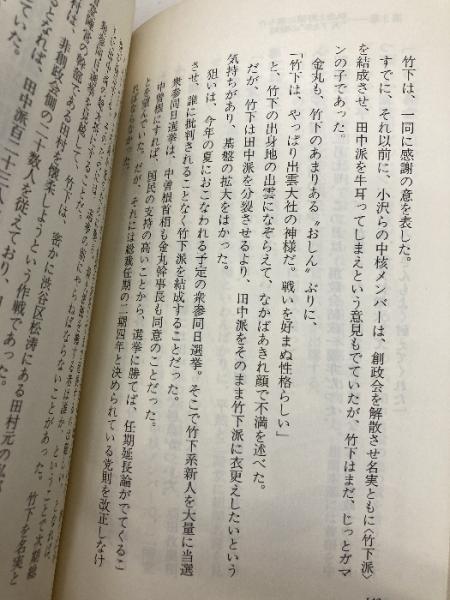 竹下は、一同に感謝の意を表した。
すでに、それ以前に、小沢らの中核メンバーは、創政会を解散させ名実ともに〈竹下派〉
を結成させ、田中派を牛耳ってしまえという意見もでていたが、竹下はまだ、じっとガマ
ンの子であった。
金丸も、竹下のあまりある〝おしん〟ぶりに、
「竹下は、やっぱり出雲大社の神様だ。戦いを好まぬ性格らしい」
と、竹下の出身地の出雲になぞらえて、なかばあきれ顔で不満を述べた。
だが、竹下は田中派を分裂させるより、田中派をそのまま竹下派に衣更えしたいという
気持ちがあり、基盤の拡大をはかった。
狙いは、今年の夏におこなわれる予定の衆参同日選挙。そこで竹下系新人を大量に当選
させ、誰に批判されることなく竹下派を結成することだった。
衆参同日選挙は、中曽根首相も金丸幹事長も同意のことだった。
中曽根にすれば、国民の支持の高いことから、選挙に勝てば、任期延長論がでてくるこ
とを望んでいた。だが、それには総裁任期の二期四年と決められている党則を改正しなけ
ればならなかった。
竹下は、
密かに渋谷区松涛にある田村元の私